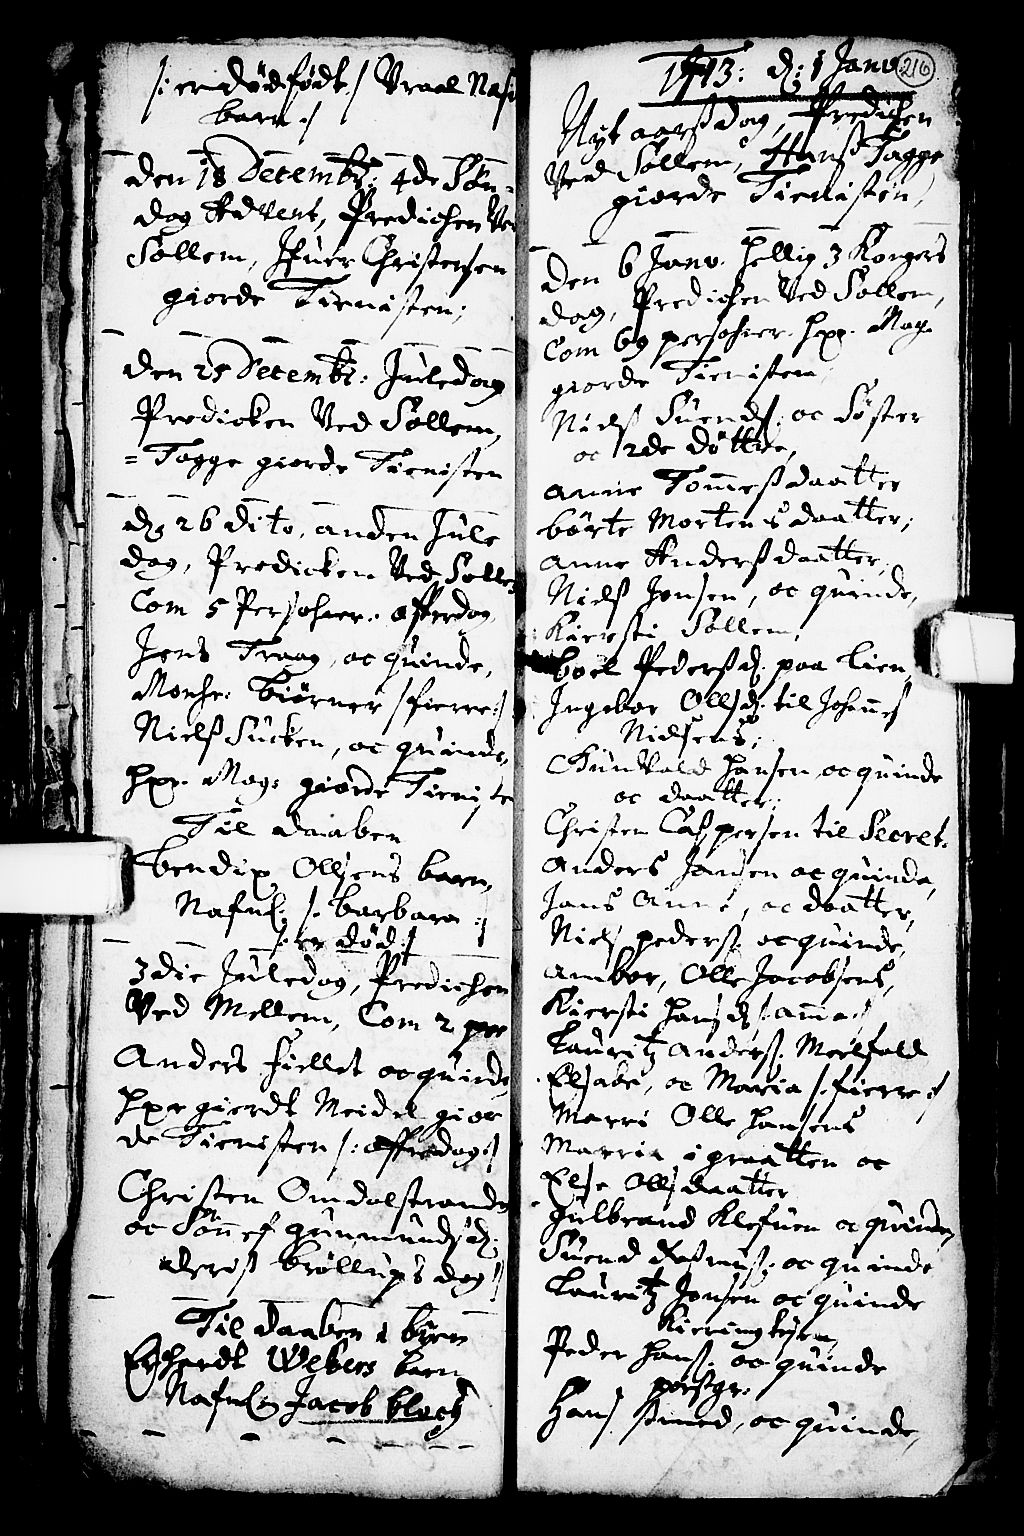 /: er dødfødt :/ Vraal Nafn
barn :/
Den 18 Decembr: 4de Søn-
dag Advent, Predichen Ved
Sollem, Ifuer Christensen
giorde Tienisten;
Den 25 Decembr: Juledag
Predicken Ved Sollem,
= Togge giorde Tienisten
d: 26 dito, anden Jule
dag, Predicken Ved Sollem
Com 5 Persohner. afterdag
Jens Traag, oc quinde,
Monhr: Biørner /:fierre:/
Nielss Sücken, oc quinde,
hxr. Mag: giorde Tieniste
Til daaben
bendix Ollsens barn,
Nafnl: /: barbara :/
/: er død :/
3die Juledag, Predichen
Ved Mellem, Com 2 per
Anders fiellet oc quinde
hxr gierdt Meidel gior
de Tienisten /: afterdag :/
Christen Omdalstrande
oc Sønnef gunmundsd:
deris bröllups dag :/
Til daaben 1 barn
Eghardt Webers barn
Nafnl: Jacob bloch
1713: d: 1 Janv
210
Nyt aarss dag, Predichen
Ved Sollem, Hanss Togge
giorde Tienisten,
Den 6 Janv. hellig 3 Kongers
dag, Predichen Ved Sollem,
Com 69 persohner. hxr. Mag.
giorde Tienisten;
Nielss Suends: oc Søster
oc 2de döttre,
Anne Tommessdaatter
börte Mortensdaatter;
Anne Anderssdaatter,
Nielss Jensen, oc quinde,
Kiersti Sollem,
boel Pederssd: paa lien,
Ingebor Ollsd: til Johannes
Nielsens;
Gunvald hansen oc quinde
oc daatter;
Christen Caspersen til Secret.
Anders Jansen oc quinde,
Jans Anne, oc daatter,
Niels peders: oc quinde,
Ambor, Olle Jacobsens,
Kiersti hansd: /: amma :/
Lauritz Anderss: Meelfald
Elsabe, oc Maria /: fierre :/
Marri Olle hansens
Marria i graatten oc
Else Ollsdaatter
Gulbrand Klefuen oc quinde,
Suend Rassmuss: oc quinde
Lauritz Jensen oc quinde
Kieringkysen,
Peder hanss: oc quinde
porssgr:
Hans smed, oc quinde,